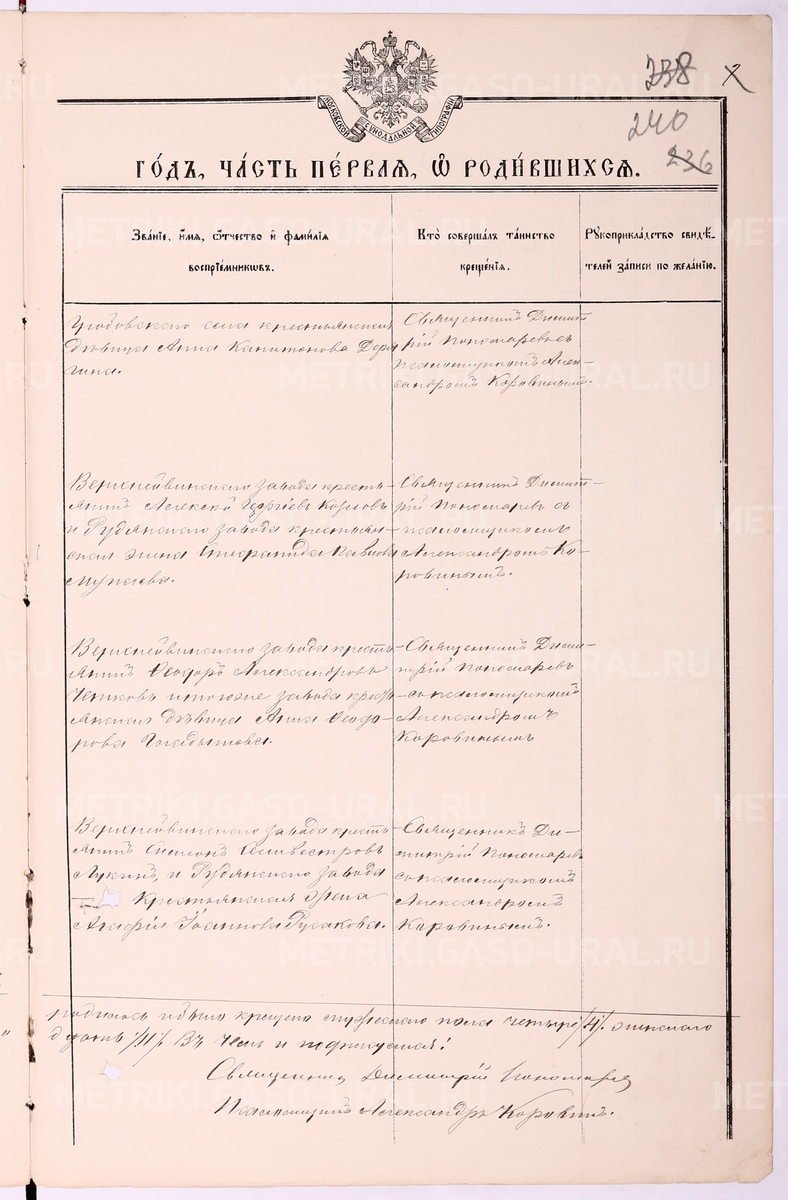 238
240
236
МОСКОВСКОЙ СѴНОДАЛЬНОЙ ТИПОГРАФІИ
ГО́ДЪ, ЧА́СТЬ ПЕ́РВАЯ, Ѡ҆ РОДИ́ВШИХСЯ.
Зва́нїе, и҆́мя, ѻ҆́тчество и҆ фами́лїя
воспрїе́мникѡвъ.
Кто̀ соверша́лъ та́инство
креще́нїя.
Рꙋкоприкла́дство свидѣ́-
телей за́писи по жела́нїю.
села крестьянская
дѣвица Анна Капитонова
Священникъ Димит
рій Пономаревъ съ
псаломщикомъ Алек-
сандромъ Коровинымъ.
Верхнейвинскаго завода кресть-
янинъ Алексѣй Георгіевъ Козловъ
и Рудянскаго завода крестьян-
ская жена
Священникъ Димит-
рій Пономаревъ съ
псаломщикомъ
Александромъ Ко-
ровинымъ.
Верхнейвинскаго завода кресть-
янинъ Ѳеодоръ Александровъ
завода кресть
янская дѣвица Анна Ѳеодо-
рова
Священникъ Дими-
трій Пономаревъ
съ псаломщикомъ
Александромъ
Коровинымъ
Верхнейвинскаго завода кресть-
янинъ Симеонъ Селивестровъ
и Рудянскаго завода
Крестьянская жена
Агафія Іоаннова Русакова.
Священникъ Ди-
митрій Пономаревъ
съ псаломщикомъ
Александромъ
Коровинымъ.
родилось и было крещено мужескаго пола четыре /4/. женскаго
Въ чемъ и подписуемся:
Священникъ Димитрій Пономаревъ
Псаломщикъ Александръ Коровинъ.
METRIKI.GASO-URAL.RU